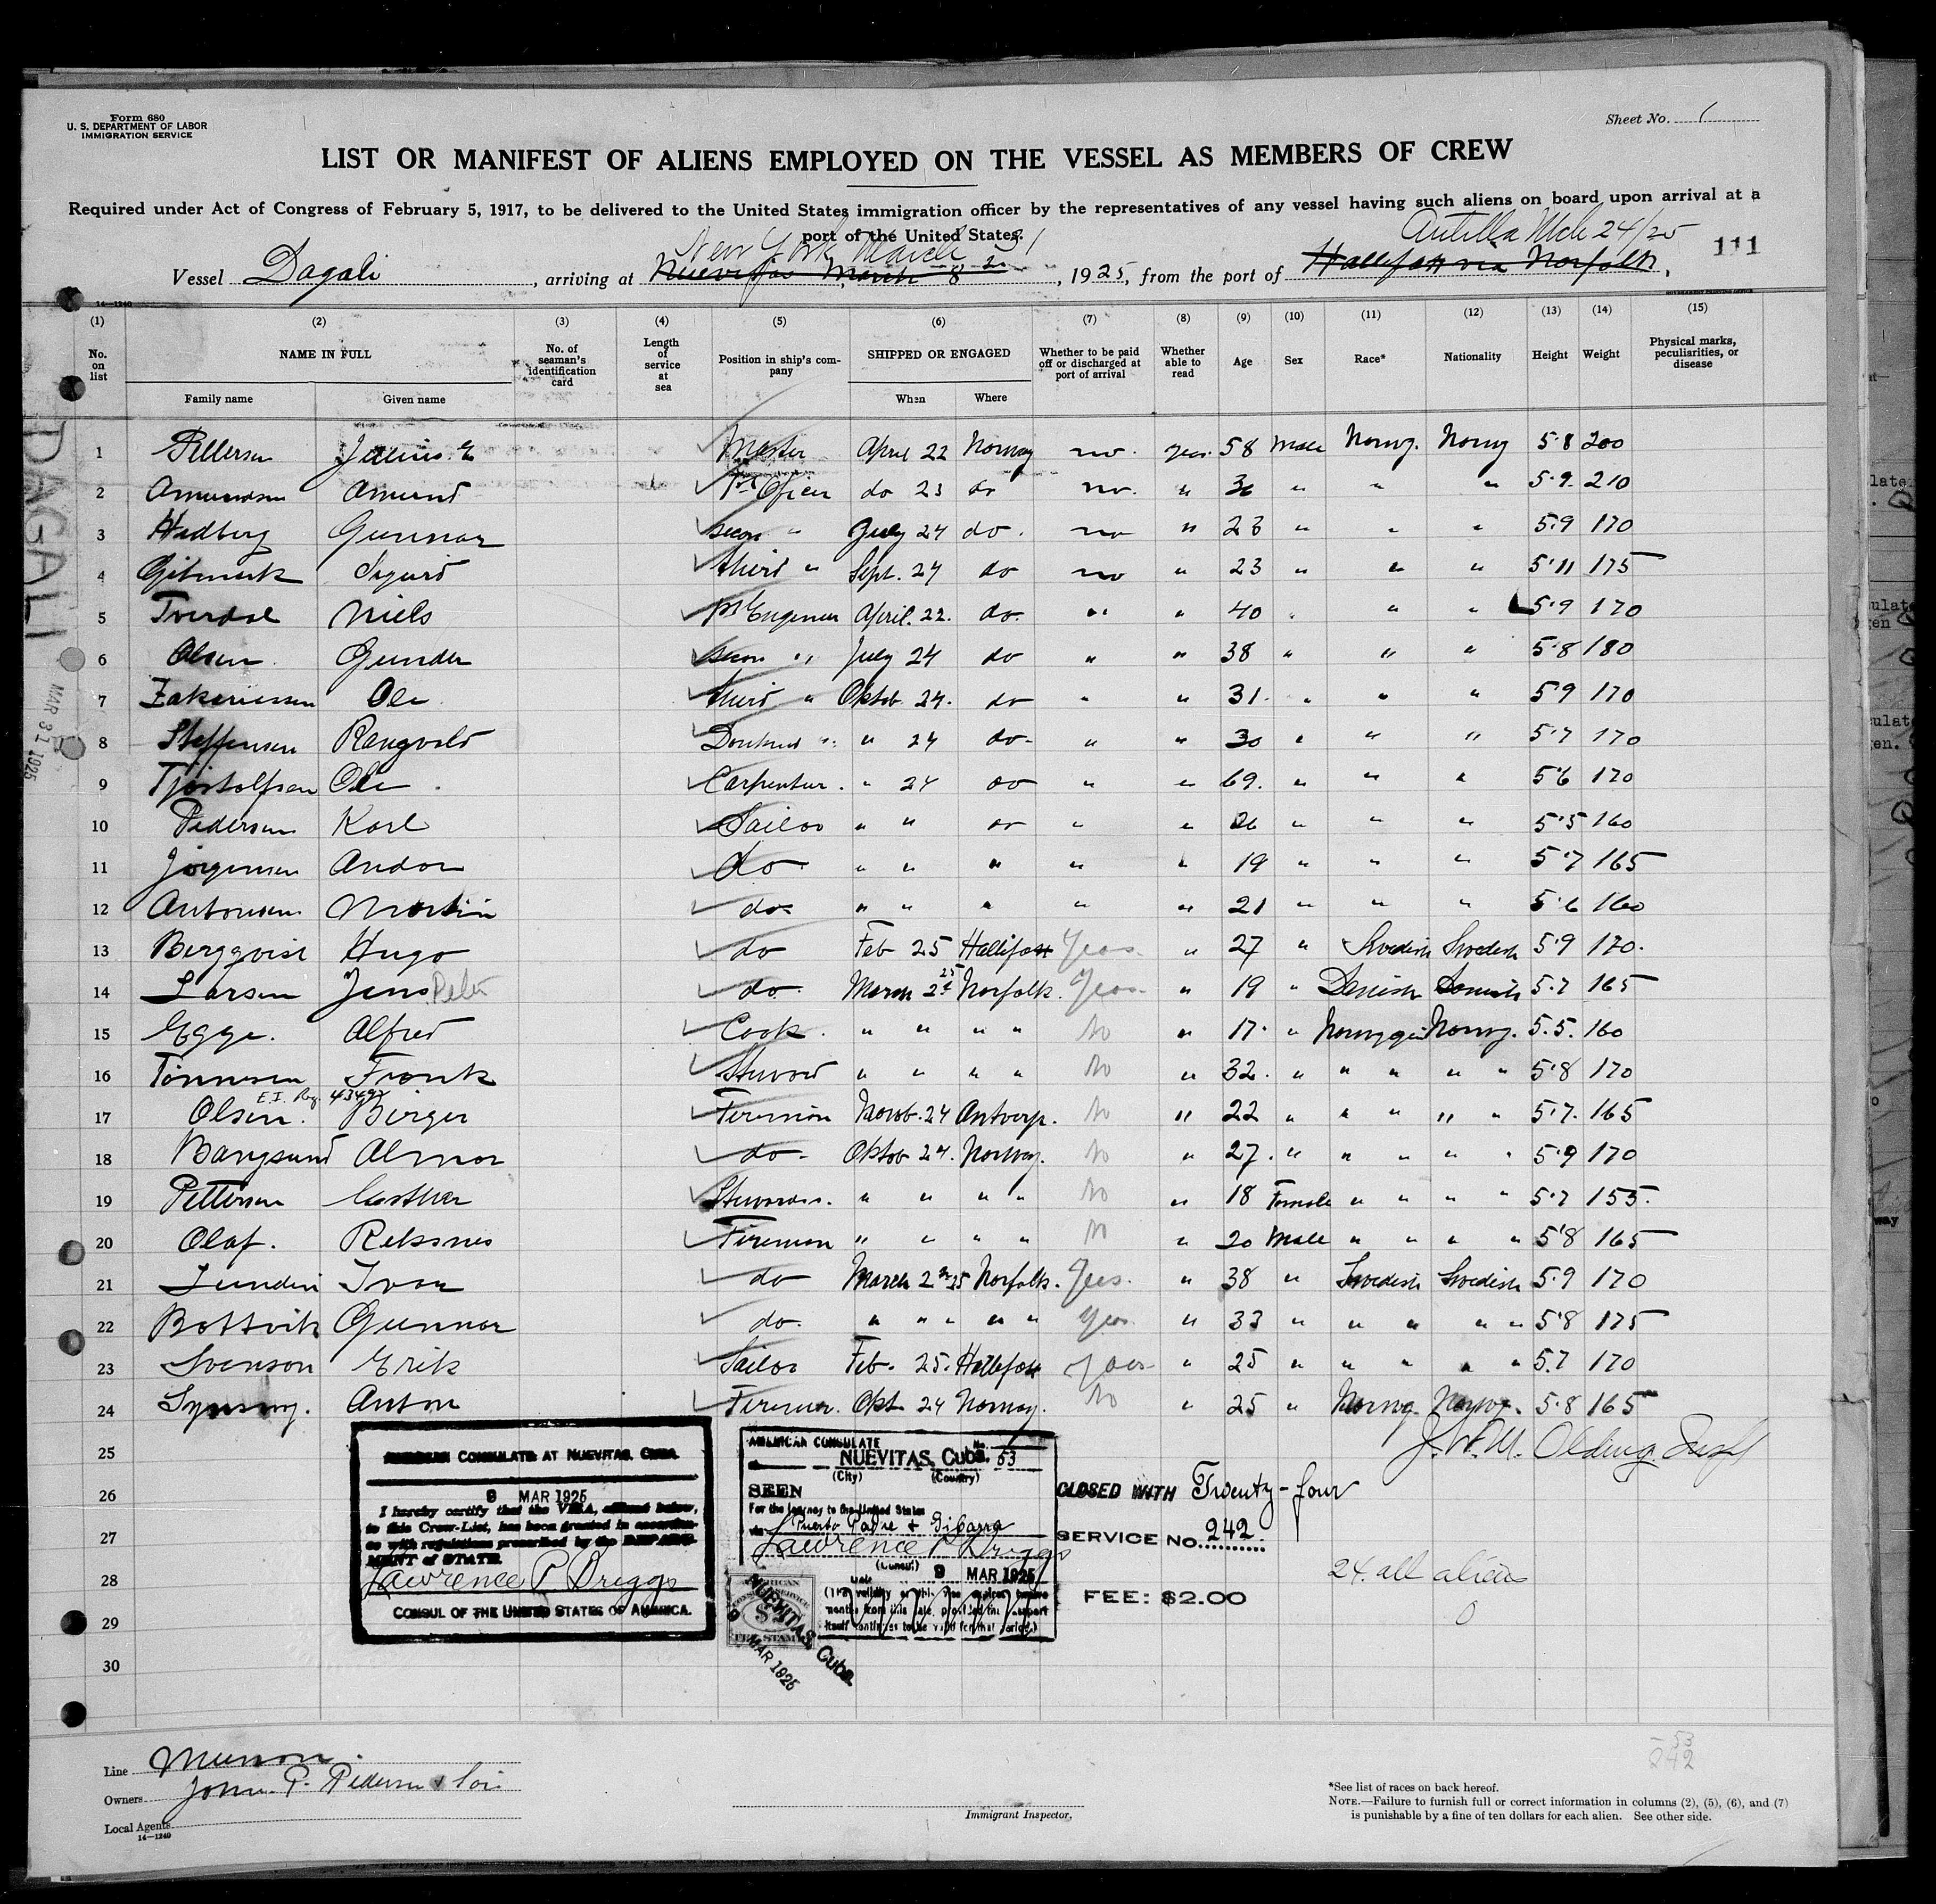 Form 680
U. S. DEPARTMENT OF LABOR
IMMIGRATION SERVICE
Sheet No. 1
LIST OR MANIFEST OF ALIENS EMPLOYED ON THE VESSEL AS MEMBERS OF CREW
Required under Act of Congress of February 5, 1917, to be delivered to the United States immigration officer by the representatives of any vessel having such aliens on board upon arrival at a
port of the United States.
New York March 31 Antilla Mch 24/25
111
Vessel Dagali, arriving at Nuevitas March 8, 1925, from the port of Hallifax via Norfolk.
14—1240
(1) (2) (3) (4) (5) (6) (7) (8) (9) (10) (11) (12) (13) (14) (15)
No. on list NAME IN FULL No. of seaman's identification card Length of service at sea Position in ship's company SHIPPED OR ENGAGED Whether to be paid off or discharged at port of arrival Whether able to read Age Sex Race* Nationality Height Weight Physical marks, peculiarities, or disease
Family name Given name When Where
1 Master April 22 Norway no. yes. 58 Male Norwg. Norwg 5·8 200
2 Amundsen Amund 1st Oficer do 23 do no. " " " " 5·9 210
3 Hedberg Gunnar secon " July 24 do. no " 23 " " " 5·9 170
4 Sigurd third " Sept. 24 do no " 23 " " " 5'11 175
5 Tverdal Niels 1st Engineer April. 22. do. " " 40 " " " 5·9 170
6 Olsen Gunder secon " July 24 do " " 38 " " " 5·8 180
7 Zakariassen Ole third " Oktob 24. do " " 31. " " " 5·9 170
8 Steffensen Rangvald " " 24 do " " 30 " " " 5·7 170
9 Tjostolfsen Ole Carpenter. " 24 do " " 69. " " " 5·6 170
10 Pedersen Karl Sailor " " do " " 26 " " " 5·5 160
11 Jörgensen Andor do " " " " " 19 " " " 5·7 165
12 Antonsen Martin do " " " " " 21 " " " 5·6 160
13 Bergqvist Hugo do Feb 25 Hallifax Yes " 27 " Swedish Swedish 5·9 170.
14 Larsen Jens Peter do March 2d 25 Norfolk. Yes " 19 " Danish Danish 5·7 165
15 Egge. Alfred Cook. " " " " No " 17. " Norwg. 5.5. 160
16 Tönnesen Frank Steward " " " " No " 32. " " " " " 5·8 170
E. I. Reg. 43492
17 Olsen. Birger Fireman Novb. 24 Antverp. No " 22 " " " " " 5·7. 165
18 Bangsund Almar do. Oktob 24. Norway. No " 27. " " " " " 5·9 170
19 Pettersen Stewardess. " " " " No " 18 Female " " " " 5·7 155.
20 Olaf. Reksnes Fireman " " " " No " 20 Male " " " " 5·8 165
21 Lundin Ivar do March 2nd 25 Norfolk. Yes. " 38 " Swedish Swedish 5·9 170
22 Bottvik Gunnar do. " " " " " Yes. " 33 " " " " " 5·8 175
23 Svenson Erik Sailor Feb. 25. Hallifax Yes " 25 " " " " " 5.7 170
24 Anton Fireman. Okt 24 Norway. No " 25 " Norwg. Norwg. 5·8 165
25
26
27
28
29
30
AMERICAN CONSULATE AT NUEVITAS, CUBA.
9 MAR 1925
I hereby certify that the VISA, affixed below,
to this Crew-List, has been granted in accordan-
ce with regulations prescribed by the DEPART-
MENT of STATE.
Lawrence P Briggs
CONSUL OF THE UNITED STATES OF AMERICA.
AMERICAN CONSULATE
NUEVITAS, Cuba. No. 53
(City) (Country)
SEEN
For the journey to the United States
via Puerto Padre & Gibarra
Lawrence P Briggs
(Consul)
Date 9 MAR 1925
NUEVITAS, Cuba.
9 MAR 1925
CLOSED WITH Twenty-four
SERVICE No. 242
FEE: $2.00
24 all aliens
0
DAGALI
MAR 31 1925
Line Munson.
Owners John P. Pedersen & Son
Local Agents
14—1240
Immigrant Inspector.
53
242
*See list of races on back hereof.
NOTE.—Failure to furnish full or correct information in columns (2), (5), (6), and (7)
is punishable by a fine of ten dollars for each alien. See other side.